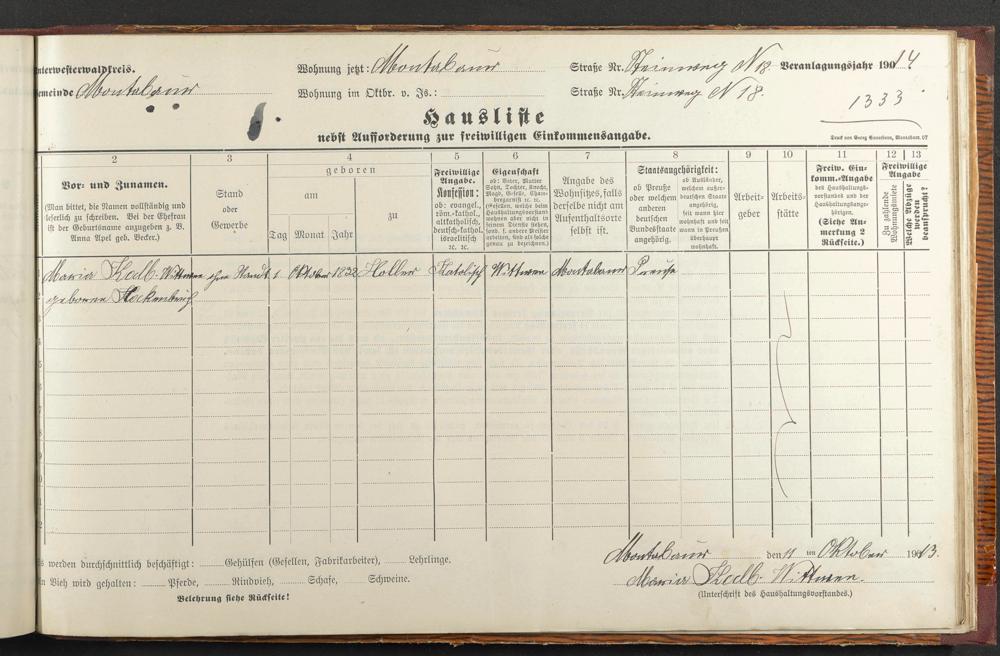 nterwesterwaldkreis.
Wohnung jetzt: Montabaur
Straße Nr. Steinweg N 18
Veranlagungsjahr 1914
emeinde Montabaur
Wohnung im Oktbr. v. Js.:
Straße Nr. Steinweg N 18.
1333
Hausliste
nebst Aufforderung zur freiwilligen Einkommensangabe.
2 3 4 5 6 7 8 9 10 11 12 13
Vor- und Zunamen.
(Man bittet, die Namen vollständig und
leserlich zu schreiben. Bei der Ehefrau
ist der Geburtsname anzugeben z. B.
Anna Apel geb. Becker.)
Stand
oder
Gewerbe
geboren
am
zu
Tag Monat Jahr
Freiwillige
Angabe.
Konfession:
ob: evangel.,
röm.-kathol.,
altkatholisch,
deutsch-kathol.
israelitisch
ec. ec.
Eigenschaft
ob: Vater, Mutter
Sohn, Tochter, Knecht,
Magd, Geselle, Cham-
bregarnist ec. ec.
(Gesellen, welche beim
Haushaltungsvorstand
wohnen aber nicht in
seinem Dienste stehen,
sond. f. andere Meister
arbeiten, sind als solche
genau zu bezeichnen.)
Angabe des
Wohnsitzes, falls
derselbe nicht am
Aufenthaltsorte
selbst ist.
Staatsangehörigkeit:
ob Preuße
oder welchem
anderen
deutschen
Bundesstaate
angehörig.
ob Ausländer,
welchem außer-
deutschen Staate
angehörig,
seit wann hier
wohnhaft und seit
wann in Preußen
überhaupt
wohnhaft.
Arbeit-
geber
Arbeits-
stätte
Freiw. Ein-
komm.-Angabe
des Haushaltungs-
vorstandes und der
Haushaltungsange-
hörigen.
(Siehe An-
merkung 2
Rückseite.)
Freiwillige
Angabe
Zu zahlende
Wohnungsmiete
Welche Abzüge
werden
beansprucht?
Maria Wittwen ohne Standt 1 Oktober 1832 Holler Katolisch Wittwen Montabaur Preuße
geborene
s werden durchschnittlich beschäftigt: Gehülfen (Gesellen, Fabrikarbeiter), Lehrlinge.
n Vieh wird gehalten: Pferde, Rindvieh, Schafe, Schweine.
Belehrung siehe Rückseite!
Montabaur den 11 ten Oktober 1913.
Maria Wittwen.
(Unterschrift des Haushaltungsvorstandes.)